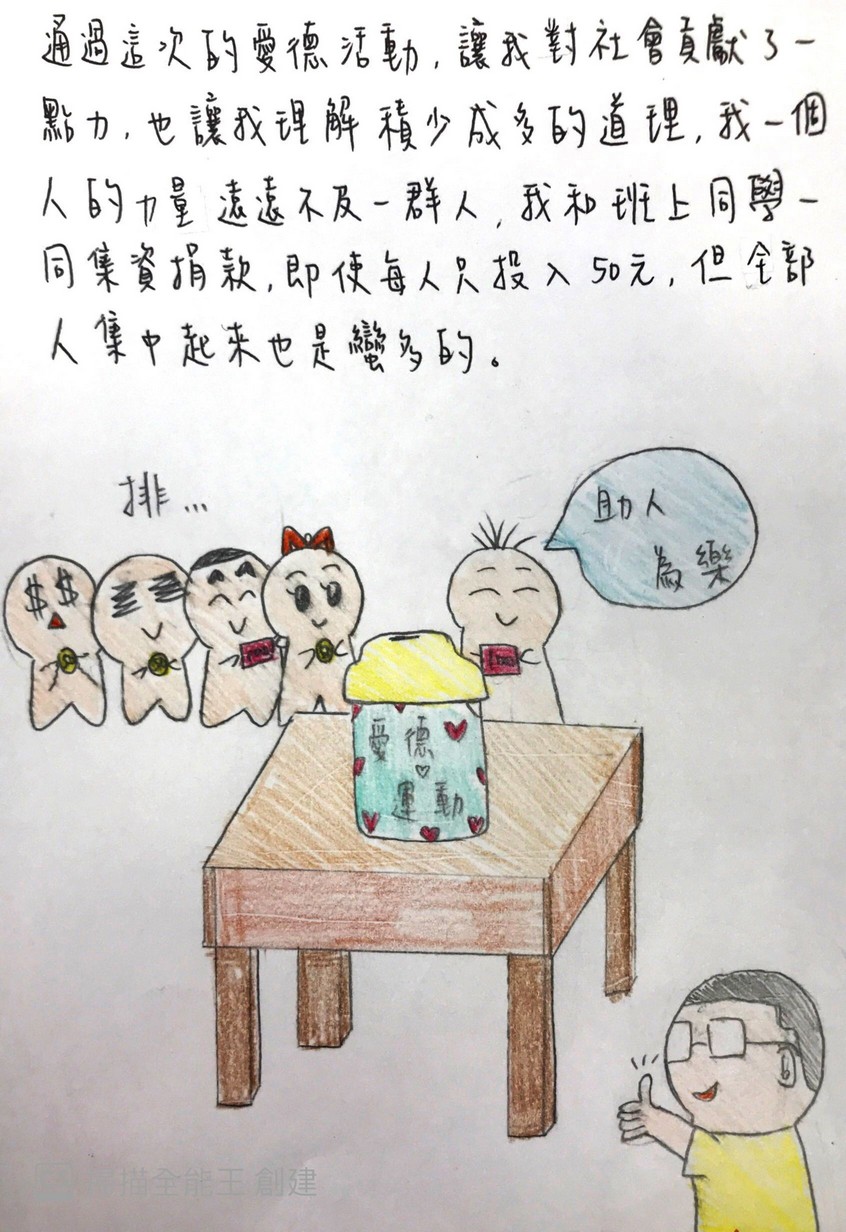 通過這次的愛德活動，讓我對社會貢獻了一
點力，也讓我理解積少成多的道理，我一個
人的力量遠遠不及一群人，我和班上同學一
同集資捐款，即使每人只投入50元，但全部
人集中起來也是蠻多的。
排...
助人
為樂
$ $
愛德
運動
描全能王 創建